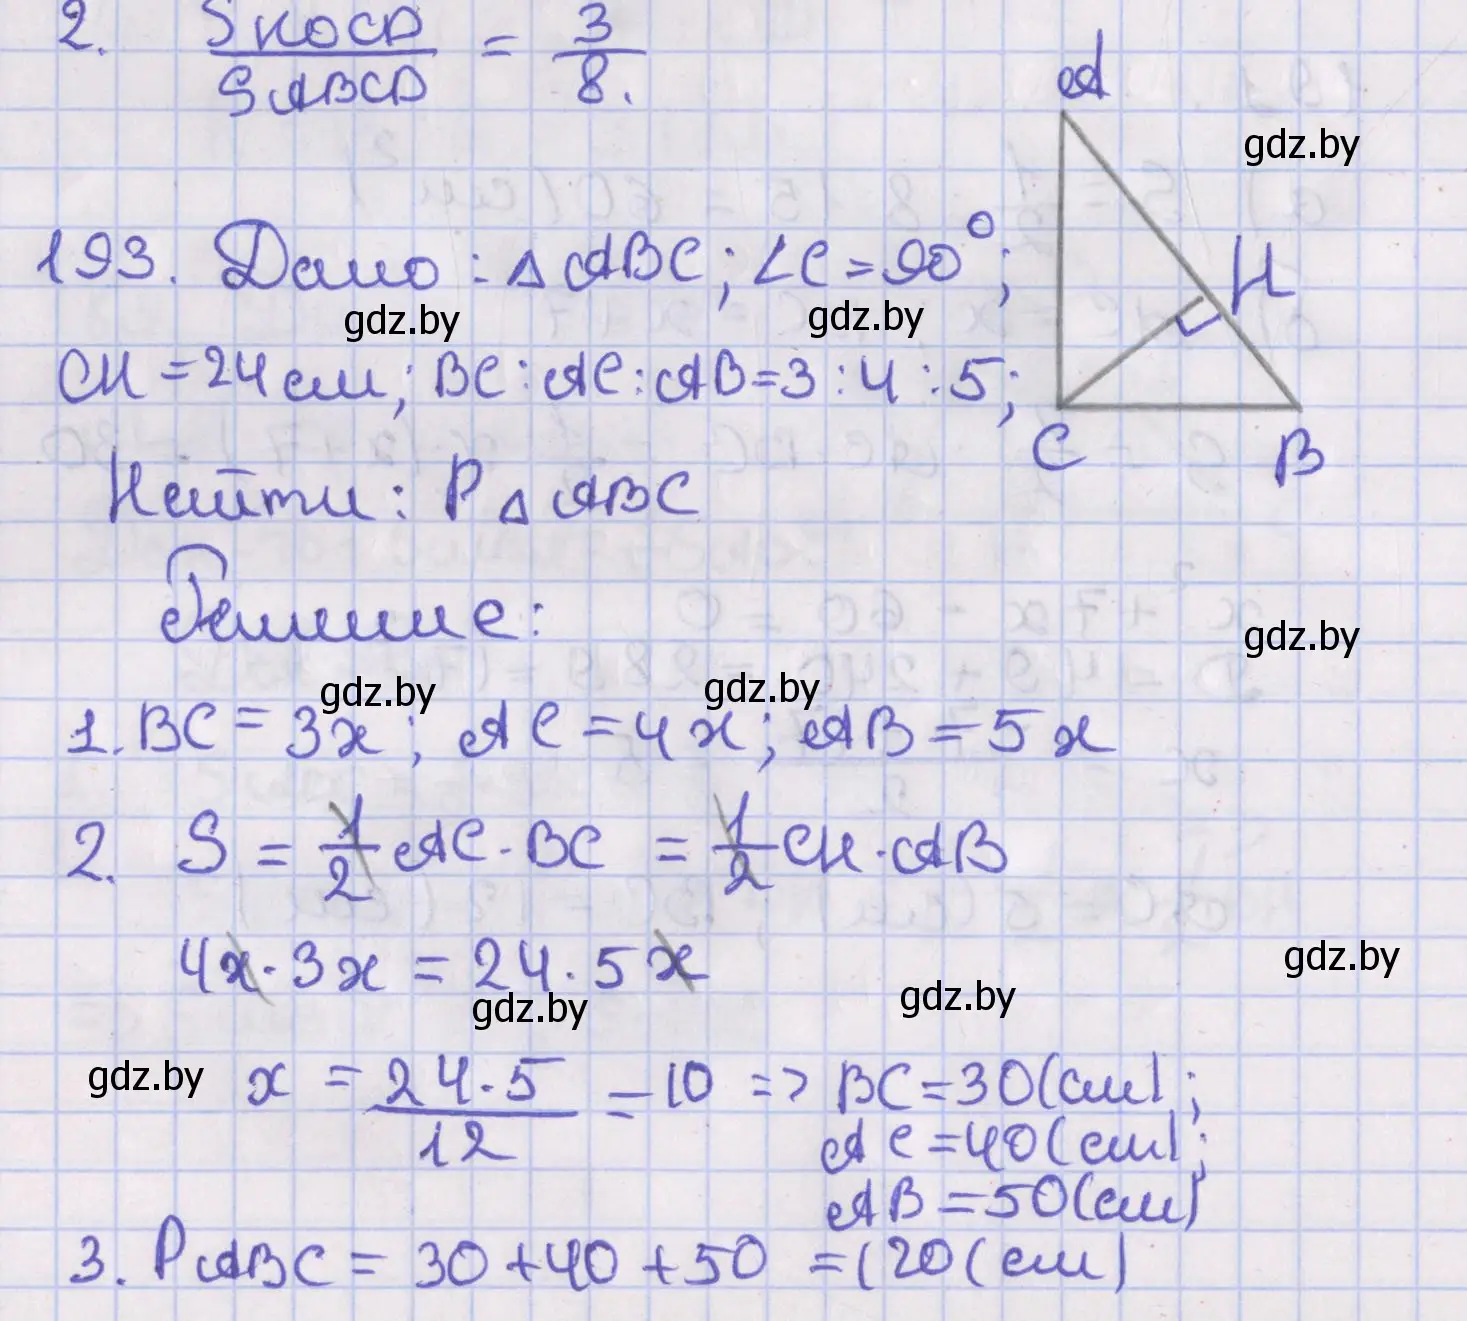 2. SKOCD / SABCD = 3/8.
A
gdz.by
193. Дано: △ABC; ∠C=90°;
H
gdz.by gdz.by
CH=24см; BC:AC:AB=3:4:5;
C B
Найти: P△ABC
Решение:
gdz.by
gdz.by gdz.by
1. BC=3x; AC=4x; AB=5x
2. S = 1/2 AC·BC = 1/2 CH·AB
4x·3x=24·5x
gdz.by
gdz.by gdz.by
gdz.by
x = 24·5/12 = 10 => BC=30(см);
AC=40(см);
AB=50(см)
3. PABC = 30+40+50 = 120(см)